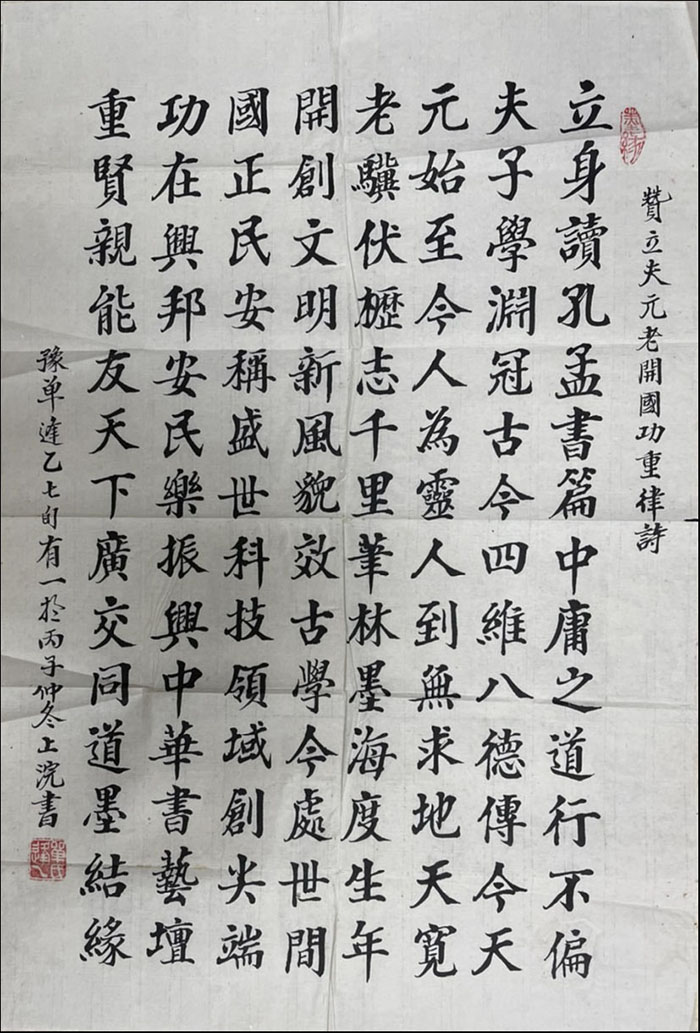 贊立夫元老開國功重律詩
立身讀孔孟書篇中庸之道行不偏
夫子學淵冠古今四維八德傳今天
元始至今人為靈人到無求地天寬
老驥伏櫪志千里筆林墨海度生年
開創文明新風貌效古學今處世間
國正民安稱盛世科技領域創尖端
功在興邦安民樂振興中華書藝壇
重賢親能友天下廣交同道墨結緣
豫单達乙七旬有一於丙子仲冬上浣書